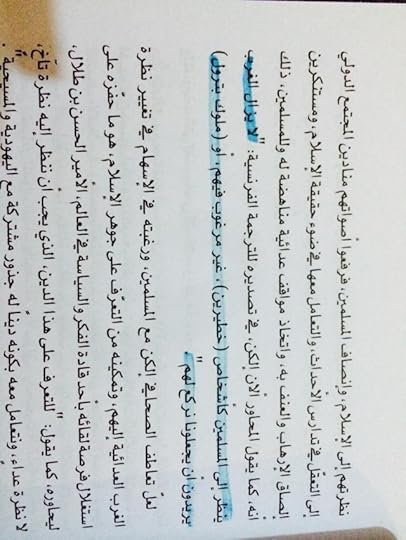 نظرتهم إلى الإسلام، وإنصاف المسلمين، فرفعوا أصواتهم منادين المجتمع الدولي
إلى التعقّل في تدارس الأحداث، والتعامل معها في ضوء حقيقة الإسلام، ومستنكرين
إلصاق الإرهاب والعنف به، واتخاذ مواقف عدائية مناهضة له وللمسلمين، ذلك
أنه، كما يقول المحاور ألان إلكن، في تصديره للترجمة الفرنسية: "لا يزال الغرب
ينظر إلى المسلمين كأشخاص (خطيرين)، غير مرغوب فيهم، أو (ملوك بترول)
يريدون أن يجعلونا نركع لهم"
لعلّ تعاطف الصحافي إلكن مع المسلمين، ورغبته في الإسهام في تغيير نظرة
الغرب العدائية إليهم، وتمكينه من التعرّف على جوهر الإسلام، هو ما حفّزه على
استغلال فرصة لقائه بأحد قادة الفكر والسياسة في العالم، الأمير الحسن بن طلال،
ليحاوره، كما يقول: "للتعرف على هذا الدين، الذي يجب أن ننظر إليه نظرة تآخٍ،
لا نظرة عداءٍ، ونتعامل معه بكونه دينًا له جذور مشتركة مع اليهودية والمسيحية".